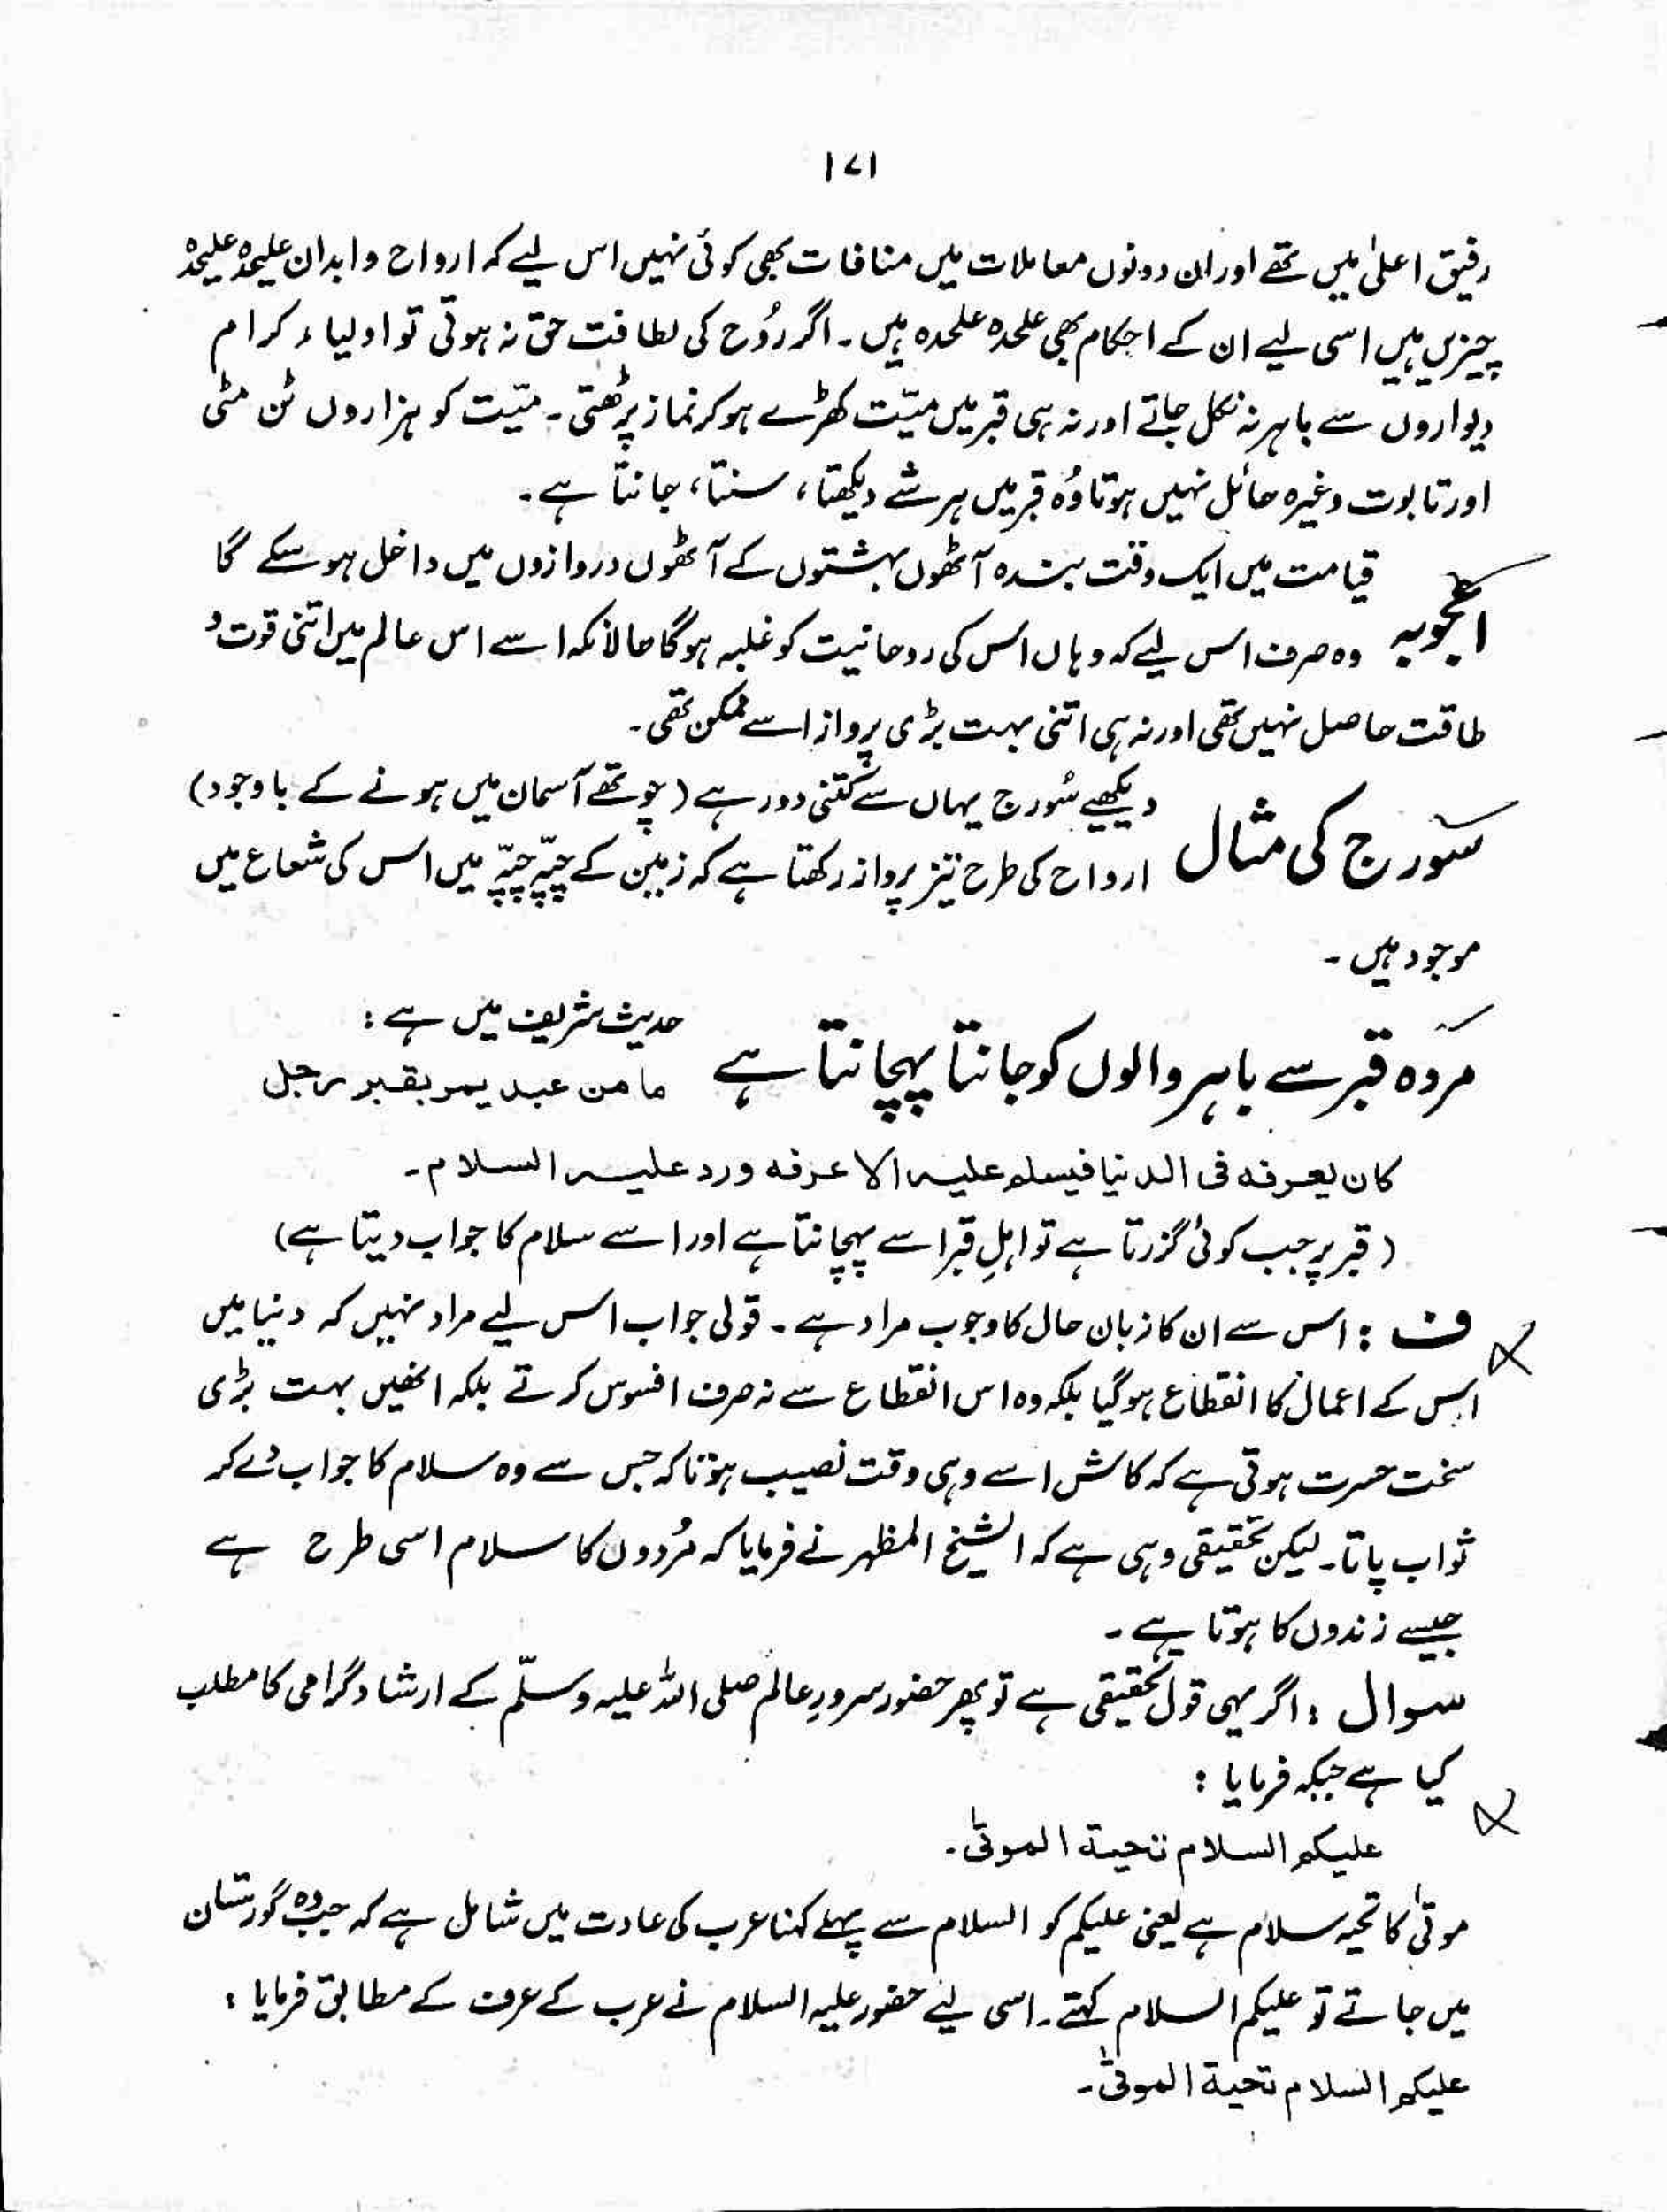 ۱۷۱
رفیق اعلیٰ میں تھے اور ان دونوں معاملات میں منافات بھی کوئی نہیں اس لیے کہ ارواح و ابدان علیحدہ علیحدہ
چیزیں ہیں اسی لیے ان کے احکام بھی علحدہ علحدہ ہیں۔ اگر رُوح کی لطافت حق نہ ہوتی تو اولیاء کرام
دیواروں سے باہر نہ نکل جاتے اور نہ ہی قبر میں میّت کھڑے ہو کر نماز پڑھتی۔ میّت کو ہزاروں ٹن مٹی
اور تابوت وغیرہ حائل نہیں ہوتا وُہ قبر میں ہر شے دیکھتا، سنتا، جانتا ہے۔
اعجوبہ
قیامت میں ایک وقت بندہ آٹھوں بہشتوں کے آٹھوں دروازوں میں داخل ہو سکے گا
وہ صرف اس لیے کہ وہاں اس کی روحانیت کو غلبہ ہوگا حالانکہ اسے اس عالم میں اتنی قوت و
طاقت حاصل نہیں تھی اور نہ ہی اتنی بہت بڑی پرواز اسے ممکن تھی۔
سورج کی مثال
دیکھیے سُورج یہاں سے کتنی دور ہے (چوتھے آسمان میں ہونے کے باوجود)
ارواح کی طرح تیز پرواز رکھتا ہے کہ زمین کے چپّہ چپّہ میں اس کی شعاع میں
موجود ہیں۔
مردہ قبر سے باہر والوں کو جانتا پہچانتا ہے
حدیث شریف میں ہے :
ما من عبد یمر بقبر رجل
کان یعرفه فی الدنیا فیسلم علیه الا عرفه ورد علیه السلام۔
(قبر پر جب کوئی گزرتا ہے تو اہلِ قبر اسے پہچانتا ہے اور اسے سلام کا جواب دیتا ہے)
ف : اس سے ان کا زبان حال کا وجوب مراد ہے۔ قولی جواب اس لیے مراد نہیں کہ دنیا میں
اس کے اعمال کا انقطاع ہو گیا بلکہ وہ اس انقطاع سے نہ صرف افسوس کرتے بلکہ انھیں بہت بڑی
سخت حسرت ہوتی ہے کہ کاش اسے وہی وقت نصیب ہوتا کہ جس سے وہ سلام کا جواب دے کر
ثواب پاتا۔ لیکن تحقیقی وہی ہے کہ الشیخ المظہر نے فرمایا کہ مُردوں کا سلام اسی طرح ہے
جیسے زندوں کا ہوتا ہے۔
سوال : اگر یہی قول تحقیقی ہے تو پھر حضور سرورِ عالم صلی اللہ علیہ وسلّم کے ارشاد گرامی کا مطلب
کیا ہے جبکہ فرمایا :
علیکم السلام تحیة الموتٰی۔
موتٰی کا تحیہ سلام ہے یعنی علیکم کو السلام سے پہلے کہنا عرب کی عادت میں شامل ہے کہ جب وہ گورستان
میں جاتے تو علیکم السلام کہتے۔ اسی لیے حضور علیہ السلام نے عرب کے عرف کے مطابق فرمایا :
علیکم السلام تحیة الموتٰی۔